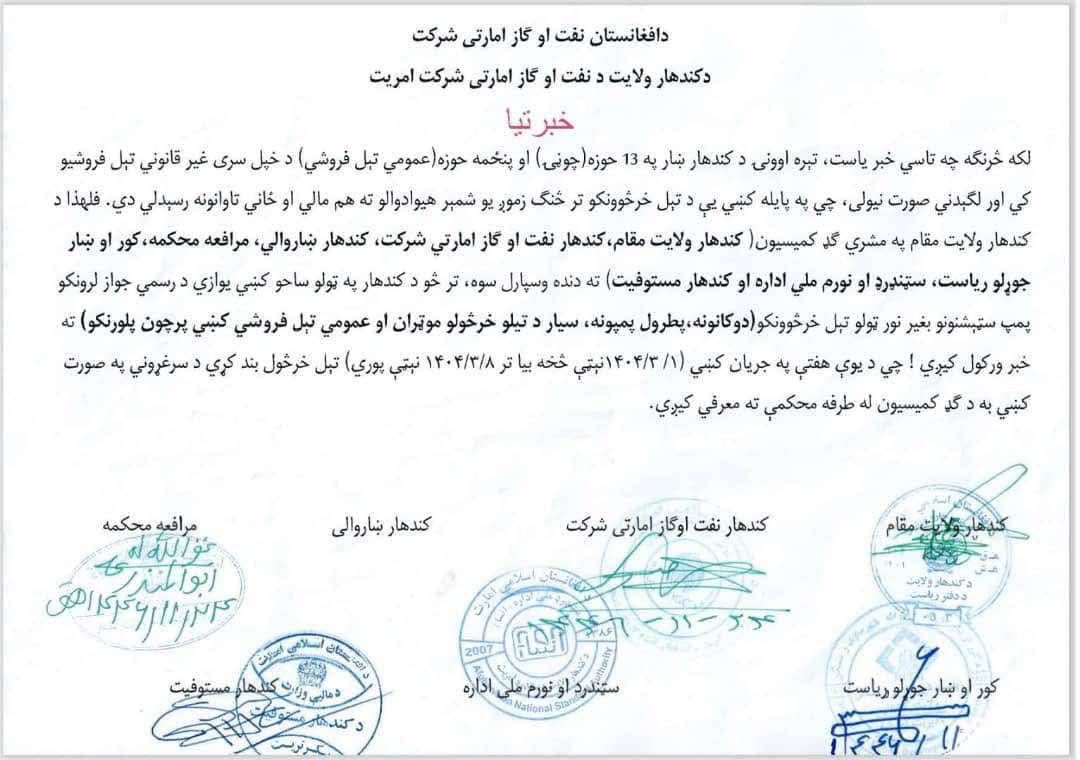 دافغانستان نفت او گاز امارتی شرکت
دکندهار ولایت د نفت او گاز امارتی شرکت امریت
خبرتیا
لکه څرنګه چه تاسي خبر یاست، تېره اوونۍ د کندهار ښار په 13 حوزه(چونۍ) او پنځمه حوزه(عمومي تېل فروشي) د خپل سری غیر قانوني تېل فروشیو
کي اور لګېدني صورت نیولی، چي په پایله کښي یې د تېل خرڅوونکو تر څنګ زموږ یو شمېر هیوادوالو ته هم مالي او ځاني تاوانونه رسېدلي دي. فلهذا د
کندهار ولایت مقام په مشري ګډ کمیسیون( کندهار ولایت مقام،کندهار نفت او گاز امارتي شرکت، کندهار ښاروالي، مرافعه محکمه،کور او ښار
جوړلو ریاست، سټنډرډ او نورم ملي اداره او کندهار مستوفیت) ته دنده وسپارل سوه، تر څو د کندهار په ټولو ساحو کښي یوازي د رسمي جواز لرونکو
پمپ سټېشنونو بغیر نور ټولو تېل خرڅوونکو(دوکانونه،پطرول پمپونه، سیار د تیلو خرڅولو موټران او عمومي تېل فروشي کښي پرچون پلورنکو) ته
خبر ورکول کیږي ! چي د یوې هفتې په جریان کښي (۱ /۱۴۰۴/۳نېټې څخه بیا تر ۱۴۰۴/۳/۸ نېټې پوري) تېل خرڅول بند کړي د سرغړوني په صورت
کښي به د ګډ کمیسیون له طرفه محکمې ته معرفي کیږي.
کندهار ولایت مقام
کندهار نفت اوگاز امارتی شرکت
کندهار ښاروالی
مرافعه محکمه
د کندهار ولایت
د دفتر ریاست
۱۴۴۶-۱۱-۲۴
ابوالمنذر
۱۴۴۶/۱۱/۲۴
د افغانستان اسلامي امارت
2007
۱۳۸۶
National Standard Authority
د افغانستان اسلامي امارت
د مالیې وزارت
د کندهار مستوفیت
کور او ښار جوړلو ریاست
سټنډرد او نورم ملي اداره
کندهار مستوفیت